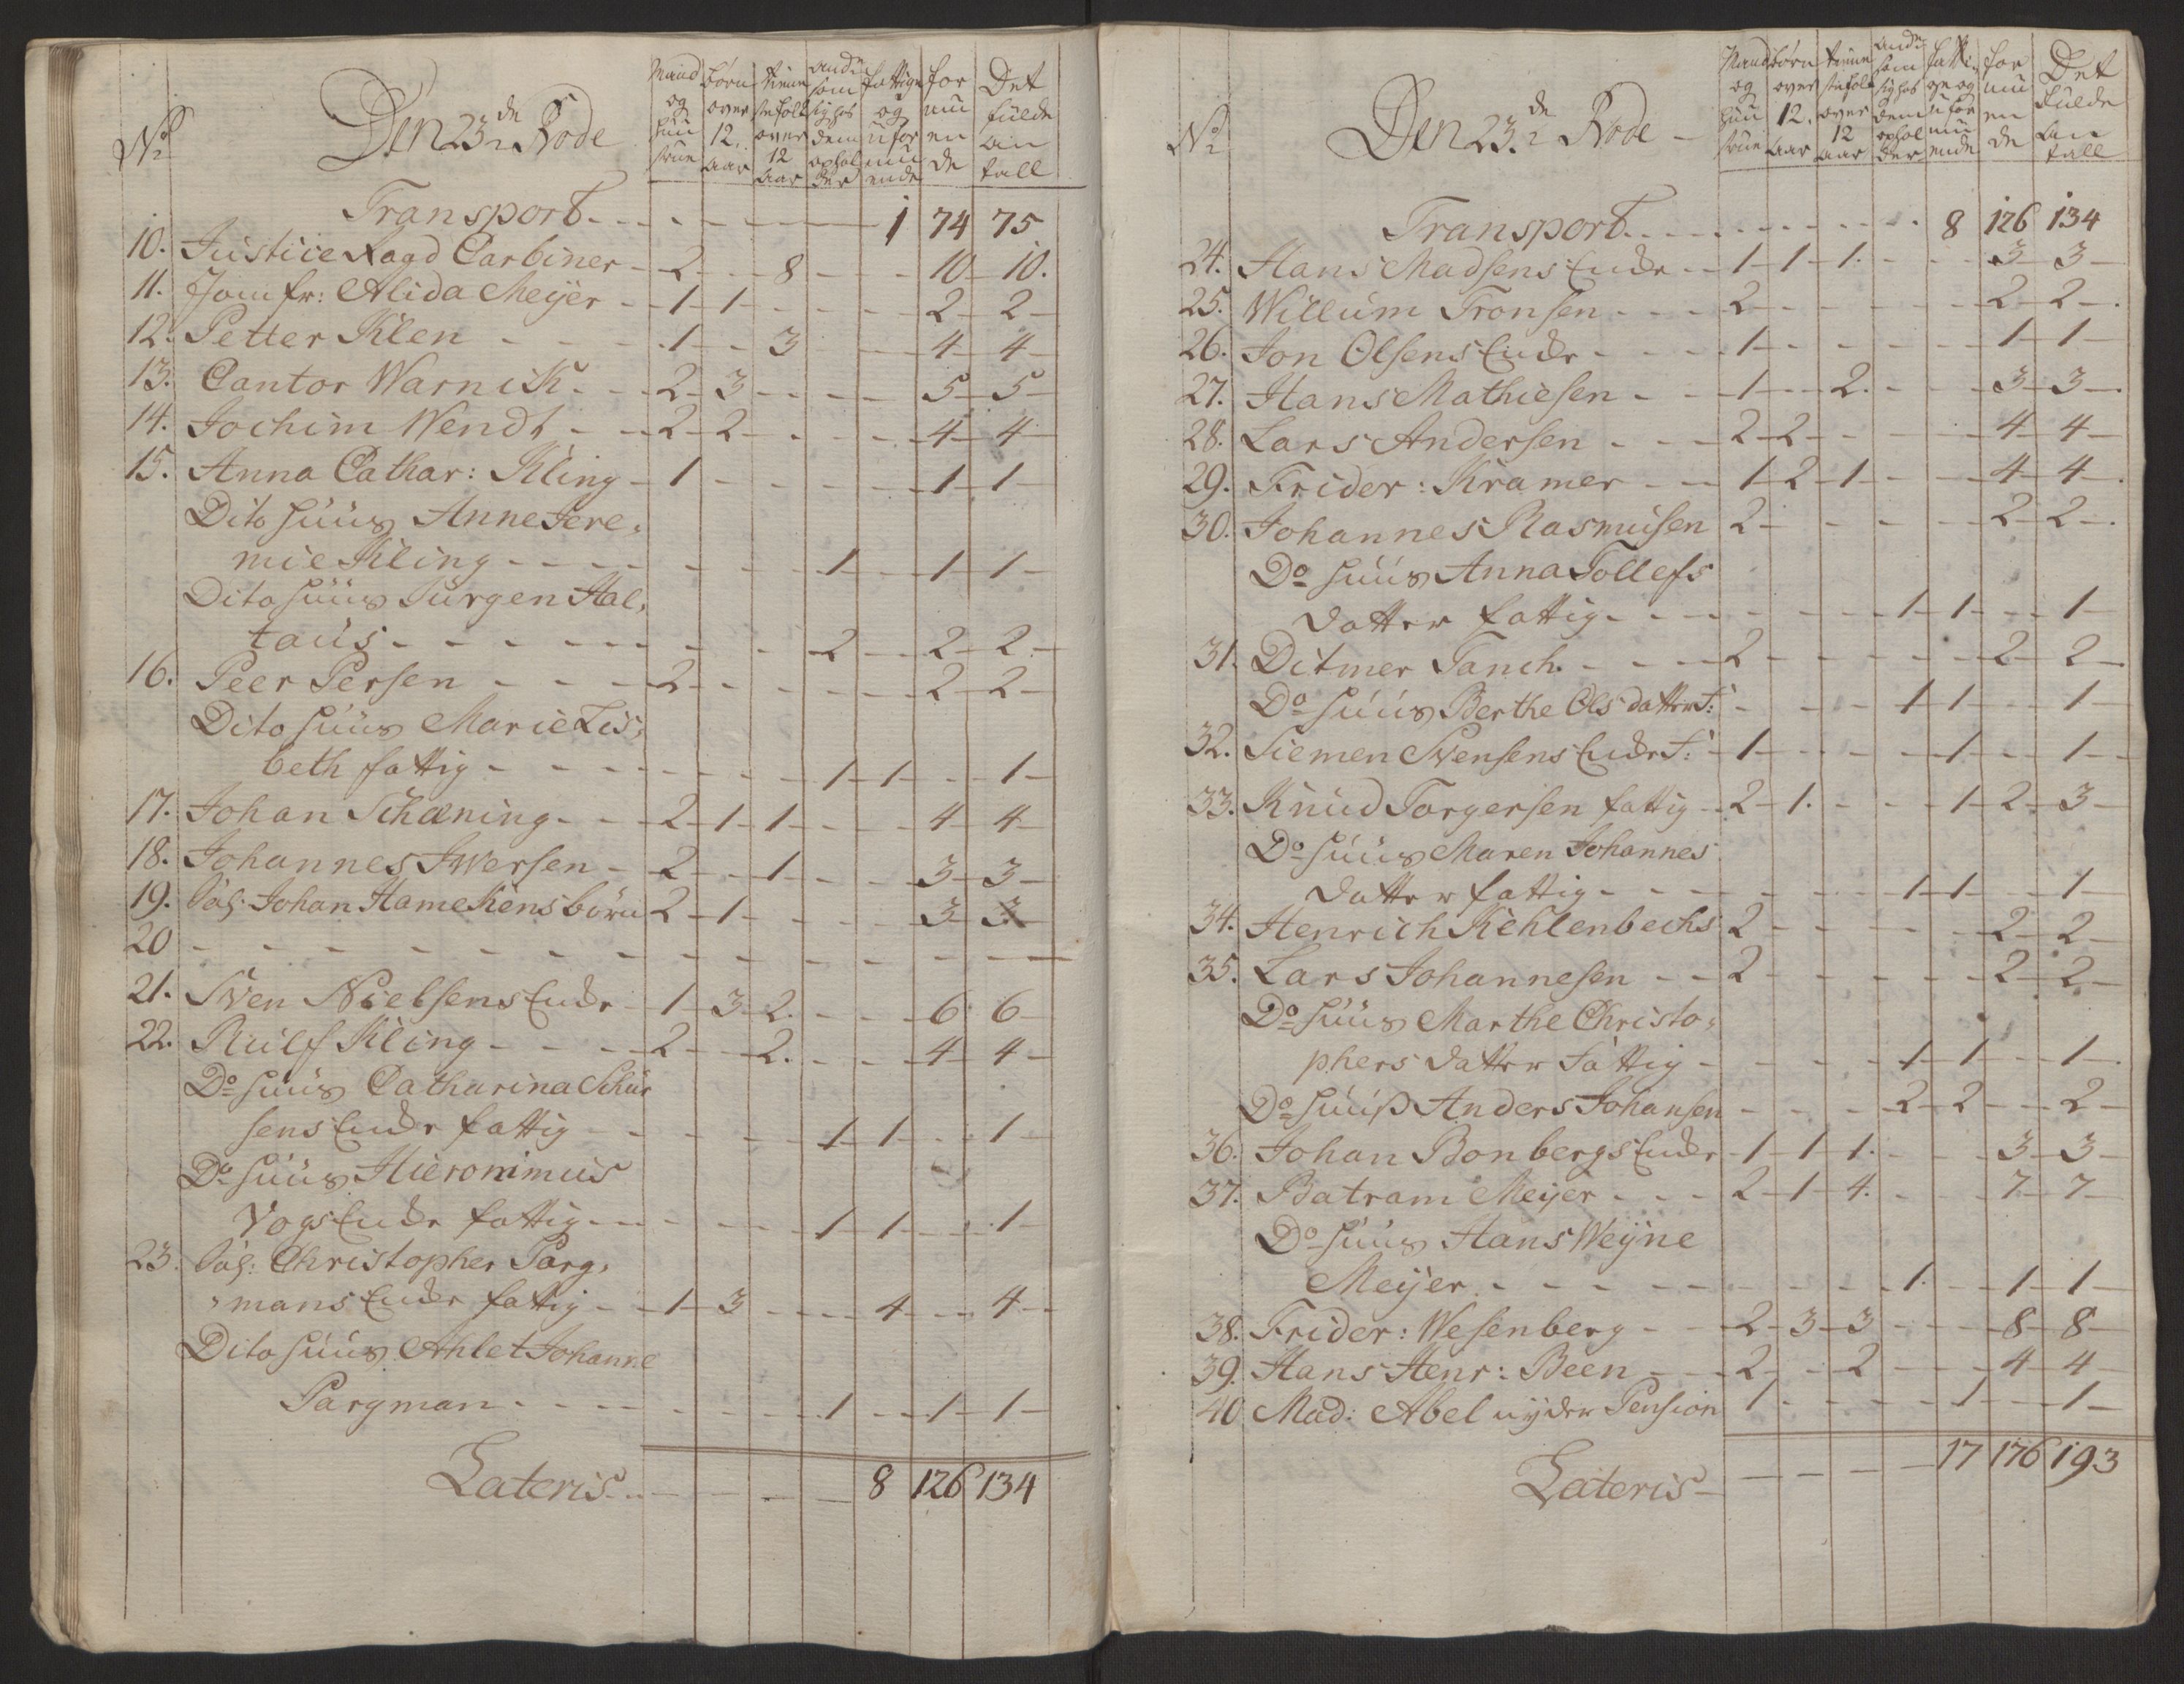 No
Den 23de Rode
Mand og Hustrue
børn over 12. aar
tienneste folk over 12 aar
andre som sig hos dem ophol der
fattige og ufor mu ende
for mu en de
Det fulde an tall
Transport - - - 1 74 75
10. Justice Raad Carbiner - 2 - 8 - - 10 - 10.
11. Jomfr: Alida Meÿer - 1 - 1 - - - 2 - 2 -
12. Petter Klen - - - 1 - 3 - - 4 - 4 -
13. Cantor Warnick - - 2 - 3 - - - 5 - 5 -
14. Jochim Wendt - - 2 - 2 - - - 4 - 4 -
15. Anna Cathar: Kling - 1 - - - - 1 - 1 -
Dito Huus Anne Jere,
mie Kling - - - - - - 1 - 1 - 1 -
Dito Huus Jurgen Hal,
taus - - - - - - 2 - 2 - 2 -
16. Peer Persen - - - 2 - - - - 2 - 2 -
Dito Huus Marie Lis,
beth fattig - - - - - - 1 - 1 - - 1 -
17. Johan Schœning - - 2 - 1 - 1 - - - 4 - 4 -
18. Johannes Iwersen - 2 - - 1 - - - 3 - 3 -
19. Sal: Johan Hamekens børn 2 - 1 - - - 3 - 3
20 - - - - - - - - - - -
21. Sven Nielsens Encke - 1 - 3 - 2. - - 6 6
22. Rulf Kling - - - 2 - - 2. - - 4 - 4 -
Do Huus Catharina Schur
sens Encke fattig - - - - 1 - 1 - - 1 -
Do Huus Hieronimus
Vogs Encke fattig - - - - 1 - 1 - - 1 -
23. Sal: Christopher Parg,
,mans Encke fattig - 1 - 3 - - 4 - - 4 -
Dito Huus Ahlet Johanne
Pargman - - - - - - 1 - - 1 - 1 -
Lateris - - - - - 8 126 134
No
Den 23de Rode -
Mand og Hustrue
børn over 12. aar
tienneste folk over 12 aar
andre som sig hos dem ophol der
fatti ge og ufor mu ende
for mu en de
Det fulde an tall
Transport - - - - 8 126 134
24. Hans Madsens Encke - - 1 - 1 - 1. - - - 3 - 3 -
25. Willum Tronsen - - - 2 - - - - 2 - 2 -
26. Jon Olsens Encke - - - 1 - - - - 1 - 1 -
27. Hans Mathiesen - - 1 - - 2. - - 3 - 3 -
28. Lars Andersen - - - 2 - 2 - - - 4 - 4 -
29. Frider: Kramer - - 1 - 2 - 1 - - - 4 - 4 -
30. Johannes Rasmusen 2 - - - - 2 - 2 -
Do Huus Anna Tollefs
datter fattig - - - - - 1 - 1 - - 1 -
31. Ditmer Tanch. - - - 2 - - - - 2 - 2 -
Do Huus Berthe Ols datter F: - - - 1 - 1 - - 1 -
32. Siemen Svensens Encke F: - 1 - - - - 1 - - 1 -
33. Knud Torgersen fattig - 2 - 1. - - 1 - 2 - 3 -
Do Huus Maren Johannes
datter fattig - - - - - 1 - 1 - - 1 -
34. Henrich Kehlenbechs 2 - - - - 2 - 2 -
35. Lars Johannesen - - 2 - - - - 2 - 2 -
Do Huus Marthe Christo,
phers datter Fattig - - - - 1 - 1 - - 1 -
Do Huus Anders Johansen - - - 2 - 2 - - 2 -
36. Johan Bonbergs Encke - 1 - 1 - 1. - - - 3 - 3 -
37. Batram Meÿer - - - 2 - 1 - 4. - - 7 - 7
Do Huus Hans Weÿne
Meÿer - - - - - - - 1. - - 1 - 1 -
38. Frider: Wesenberg - - 2 - 3 - 3 - - - 8 - 8 -
39. Hans Henr: Been - - 2 - - 2 - - - 4 - 4 -
40 Mad: Abel nÿder Pension 1 - - - - 1 - - 1 -
Lateris - - - - - 17 176 193